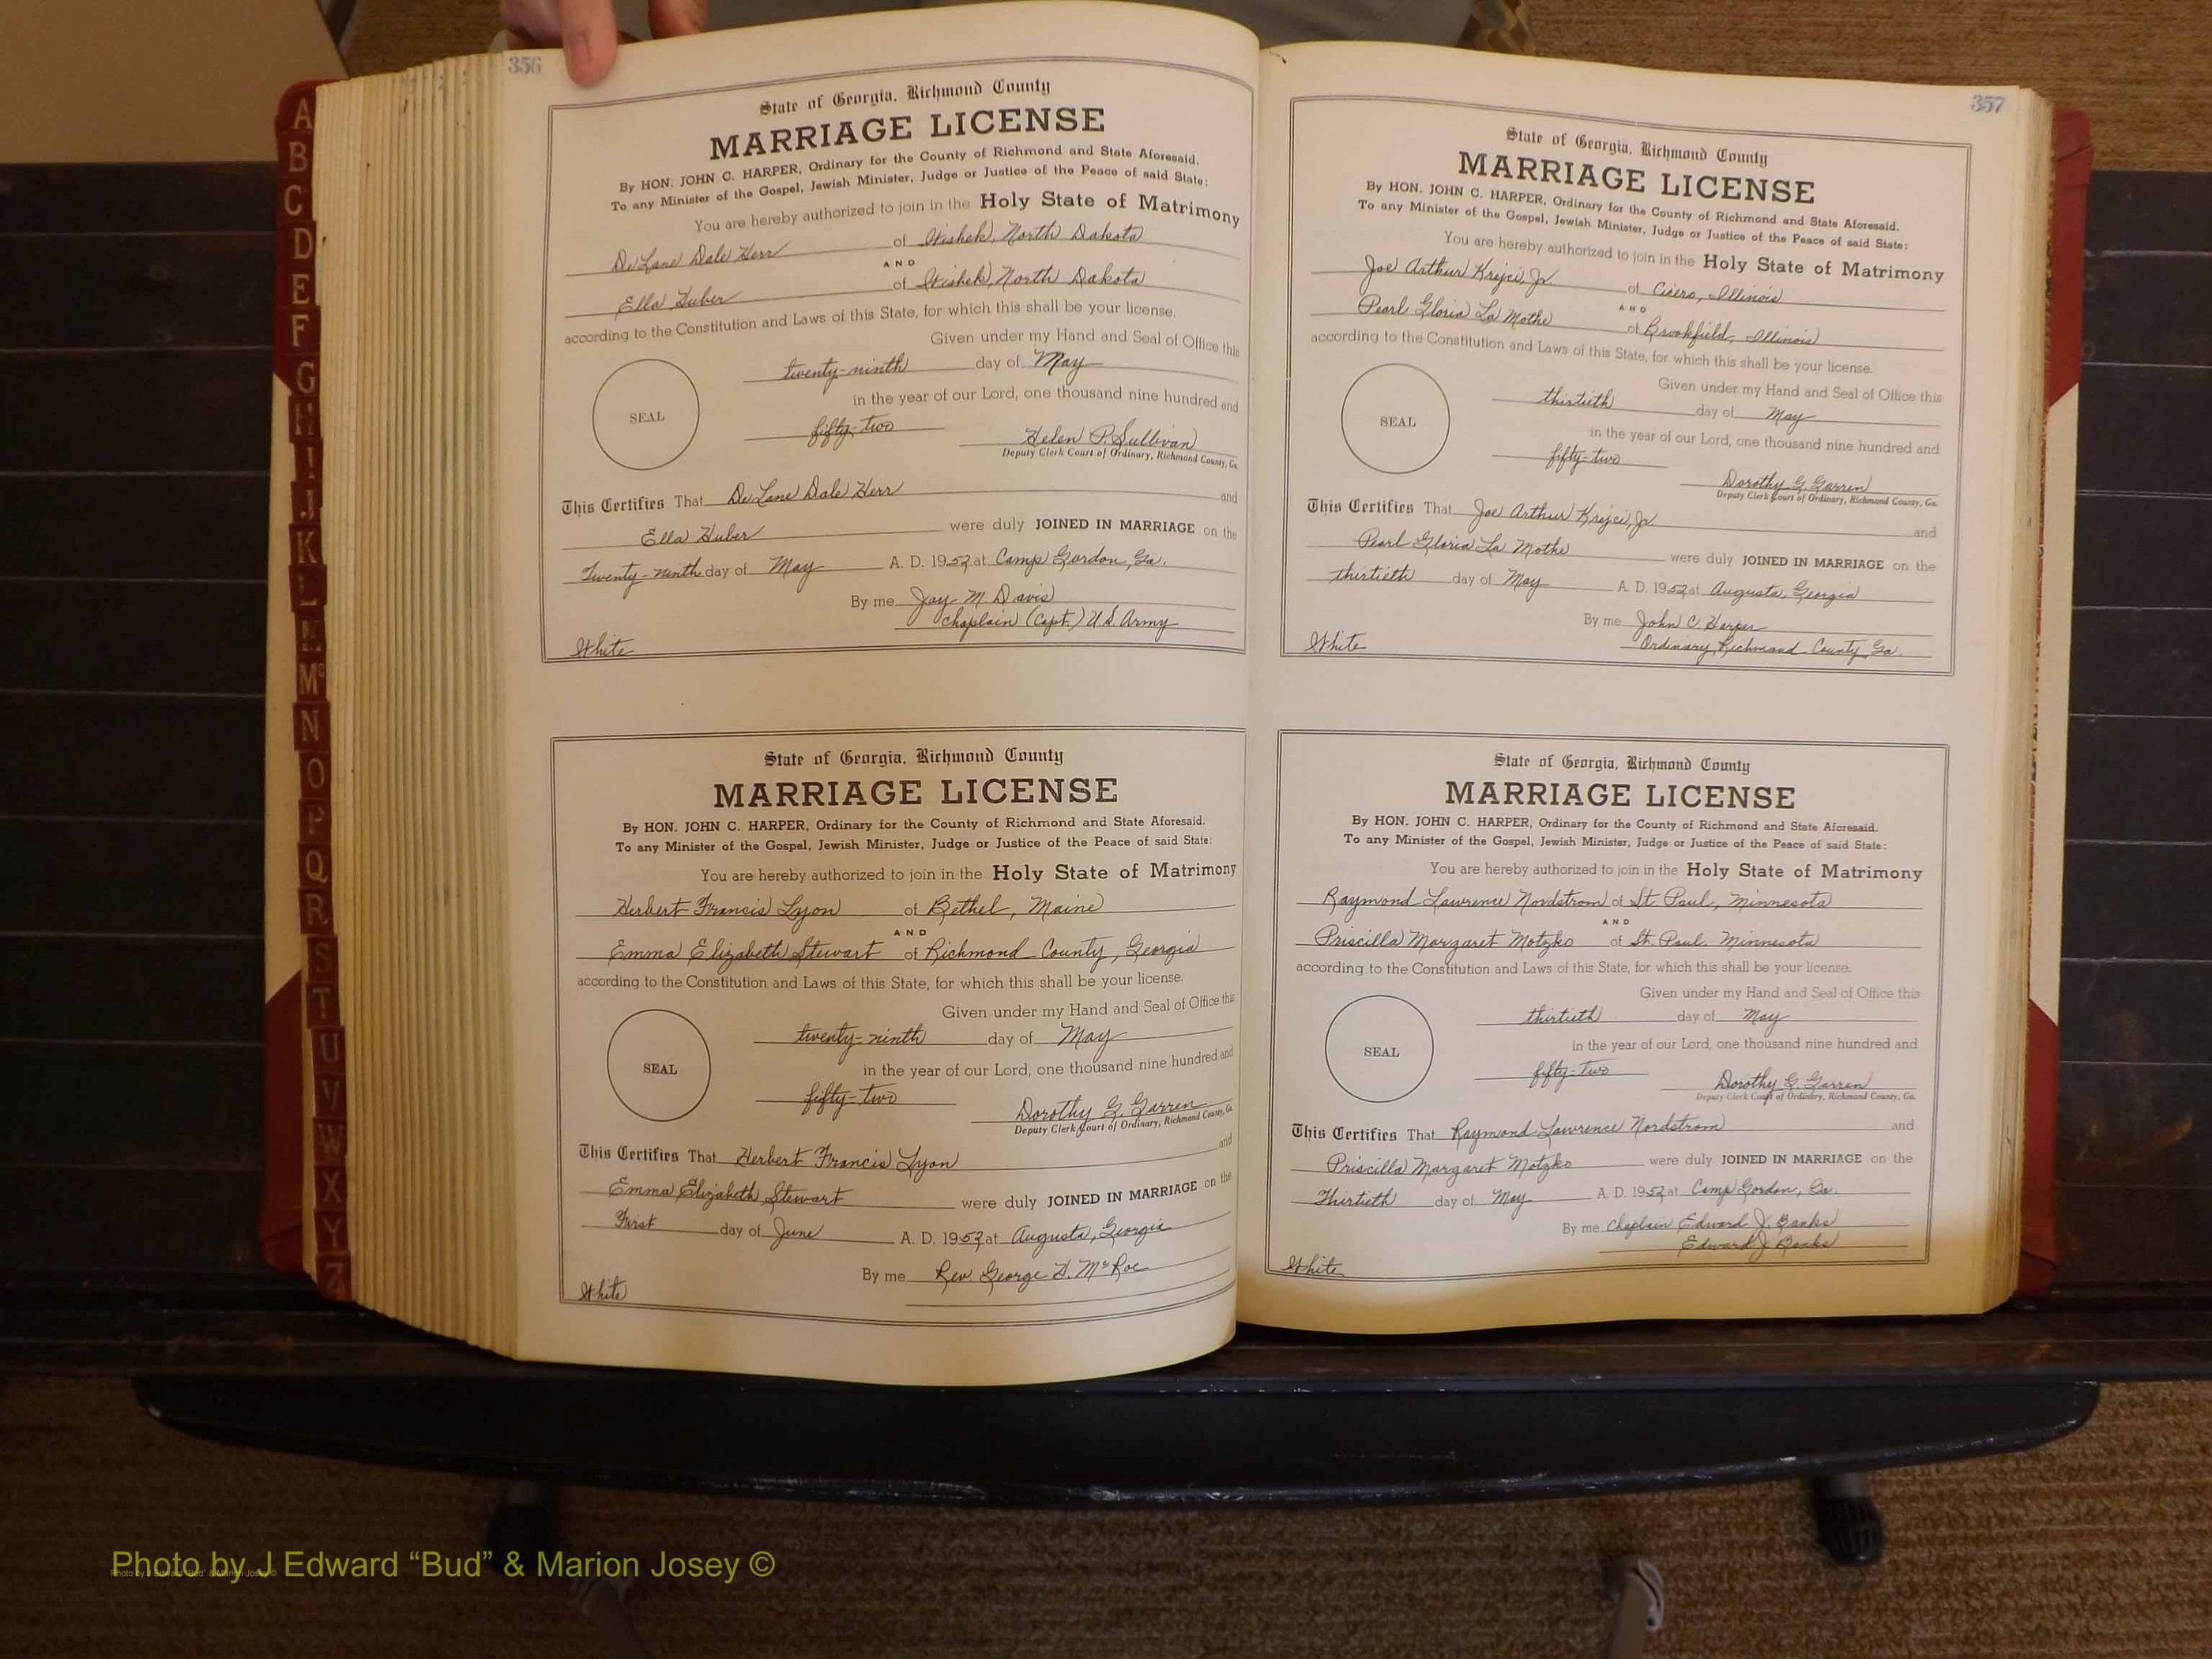 356
State of Georgia, Richmond County
MARRIAGE LICENSE
By HON. JOHN C. HARPER, Ordinary for the County of Richmond and State Aforesaid.
To any Minister of the Gospel, Jewish Minister, Judge or Justice of the Peace of said State:
You are hereby authorized to join in the Holy State of Matrimony
De Lane Dale Herr of Wishek, North Dakota
AND
Ella Huber of Wishek, North Dakota
according to the Constitution and Laws of this State, for which this shall be your license.
Given under my Hand and Seal of Office this
twenty-ninth day of May
in the year of our Lord, one thousand nine hundred and
SEAL
fifty-two
Helen P. Sullivan
Deputy Clerk Court of Ordinary, Richmond County, Ga.
This Certifies That De Lane Dale Herr and
Ella Huber were duly JOINED IN MARRIAGE on the
Twenty-ninth day of May A. D. 1952 at Camp Gordon, Ga.
By me Jay M Davis
Chaplain (Capt.) U S Army
White
State of Georgia, Richmond County
MARRIAGE LICENSE
By HON. JOHN C. HARPER, Ordinary for the County of Richmond and State Aforesaid.
To any Minister of the Gospel, Jewish Minister, Judge or Justice of the Peace of said State:
You are hereby authorized to join in the Holy State of Matrimony
Herbert Francis Lyon of Bethel, Maine
AND
Emma Elizabeth Stewart of Richmond County, Georgia
according to the Constitution and Laws of this State, for which this shall be your license.
Given under my Hand and Seal of Office this
twenty-ninth day of May
in the year of our Lord, one thousand nine hundred and
SEAL
fifty-two
Dorothy G. Garren
Deputy Clerk Court of Ordinary, Richmond County, Ga.
This Certifies That Herbert Francis Lyon and
Emma Elizabeth Stewart were duly JOINED IN MARRIAGE on the
First day of June A. D. 1952 at Augusta, Georgia
By me Rev. George D. McRae
White
357
State of Georgia, Richmond County
MARRIAGE LICENSE
By HON. JOHN C. HARPER, Ordinary for the County of Richmond and State Aforesaid.
To any Minister of the Gospel, Jewish Minister, Judge or Justice of the Peace of said State:
You are hereby authorized to join in the Holy State of Matrimony
Joe Arthur Krejci, Jr. of Cicero, Illinois
AND
Pearl Gloria La Mothe of Brookfield, Illinois
according to the Constitution and Laws of this State, for which this shall be your license.
Given under my Hand and Seal of Office this
thirtieth day of May
in the year of our Lord, one thousand nine hundred and
SEAL
fifty-two
Dorothy G. Garren
Deputy Clerk Court of Ordinary, Richmond County, Ga.
This Certifies That Joe Arthur Krejci, Jr. and
Pearl Gloria La Mothe were duly JOINED IN MARRIAGE on the
thirtieth day of May A. D. 1952 at Augusta, Georgia
By me John C. Harper
Ordinary, Richmond County Ga.
White
State of Georgia, Richmond County
MARRIAGE LICENSE
By HON. JOHN C. HARPER, Ordinary for the County of Richmond and State Aforesaid.
To any Minister of the Gospel, Jewish Minister, Judge or Justice of the Peace of said State:
You are hereby authorized to join in the Holy State of Matrimony
Raymond Lawrence Nordstrom of St. Paul, Minnesota
AND
Priscilla Margaret Motzko of St. Paul, Minnesota
according to the Constitution and Laws of this State, for which this shall be your license.
Given under my Hand and Seal of Office this
thirtieth day of May
in the year of our Lord, one thousand nine hundred and
SEAL
fifty-two
Dorothy G. Garren
Deputy Clerk Court of Ordinary, Richmond County, Ga.
This Certifies That Raymond Lawrence Nordstrom and
Priscilla Margaret Motzko were duly JOINED IN MARRIAGE on the
Thirtieth day of May A. D. 1952 at Camp Gordon, Ga.
By me Chaplain Edward J. Banks
Edward J Banks
White
A
B
C
D
E
F
G
H
I
J
K
L
M
Mc
N
O
P
Q
R
S
T
U
V
W
X
Y
Z
Photo by J Edward “Bud” & Marion Josey ©
Photo by J Edward “Bud” & Marion Josey ©